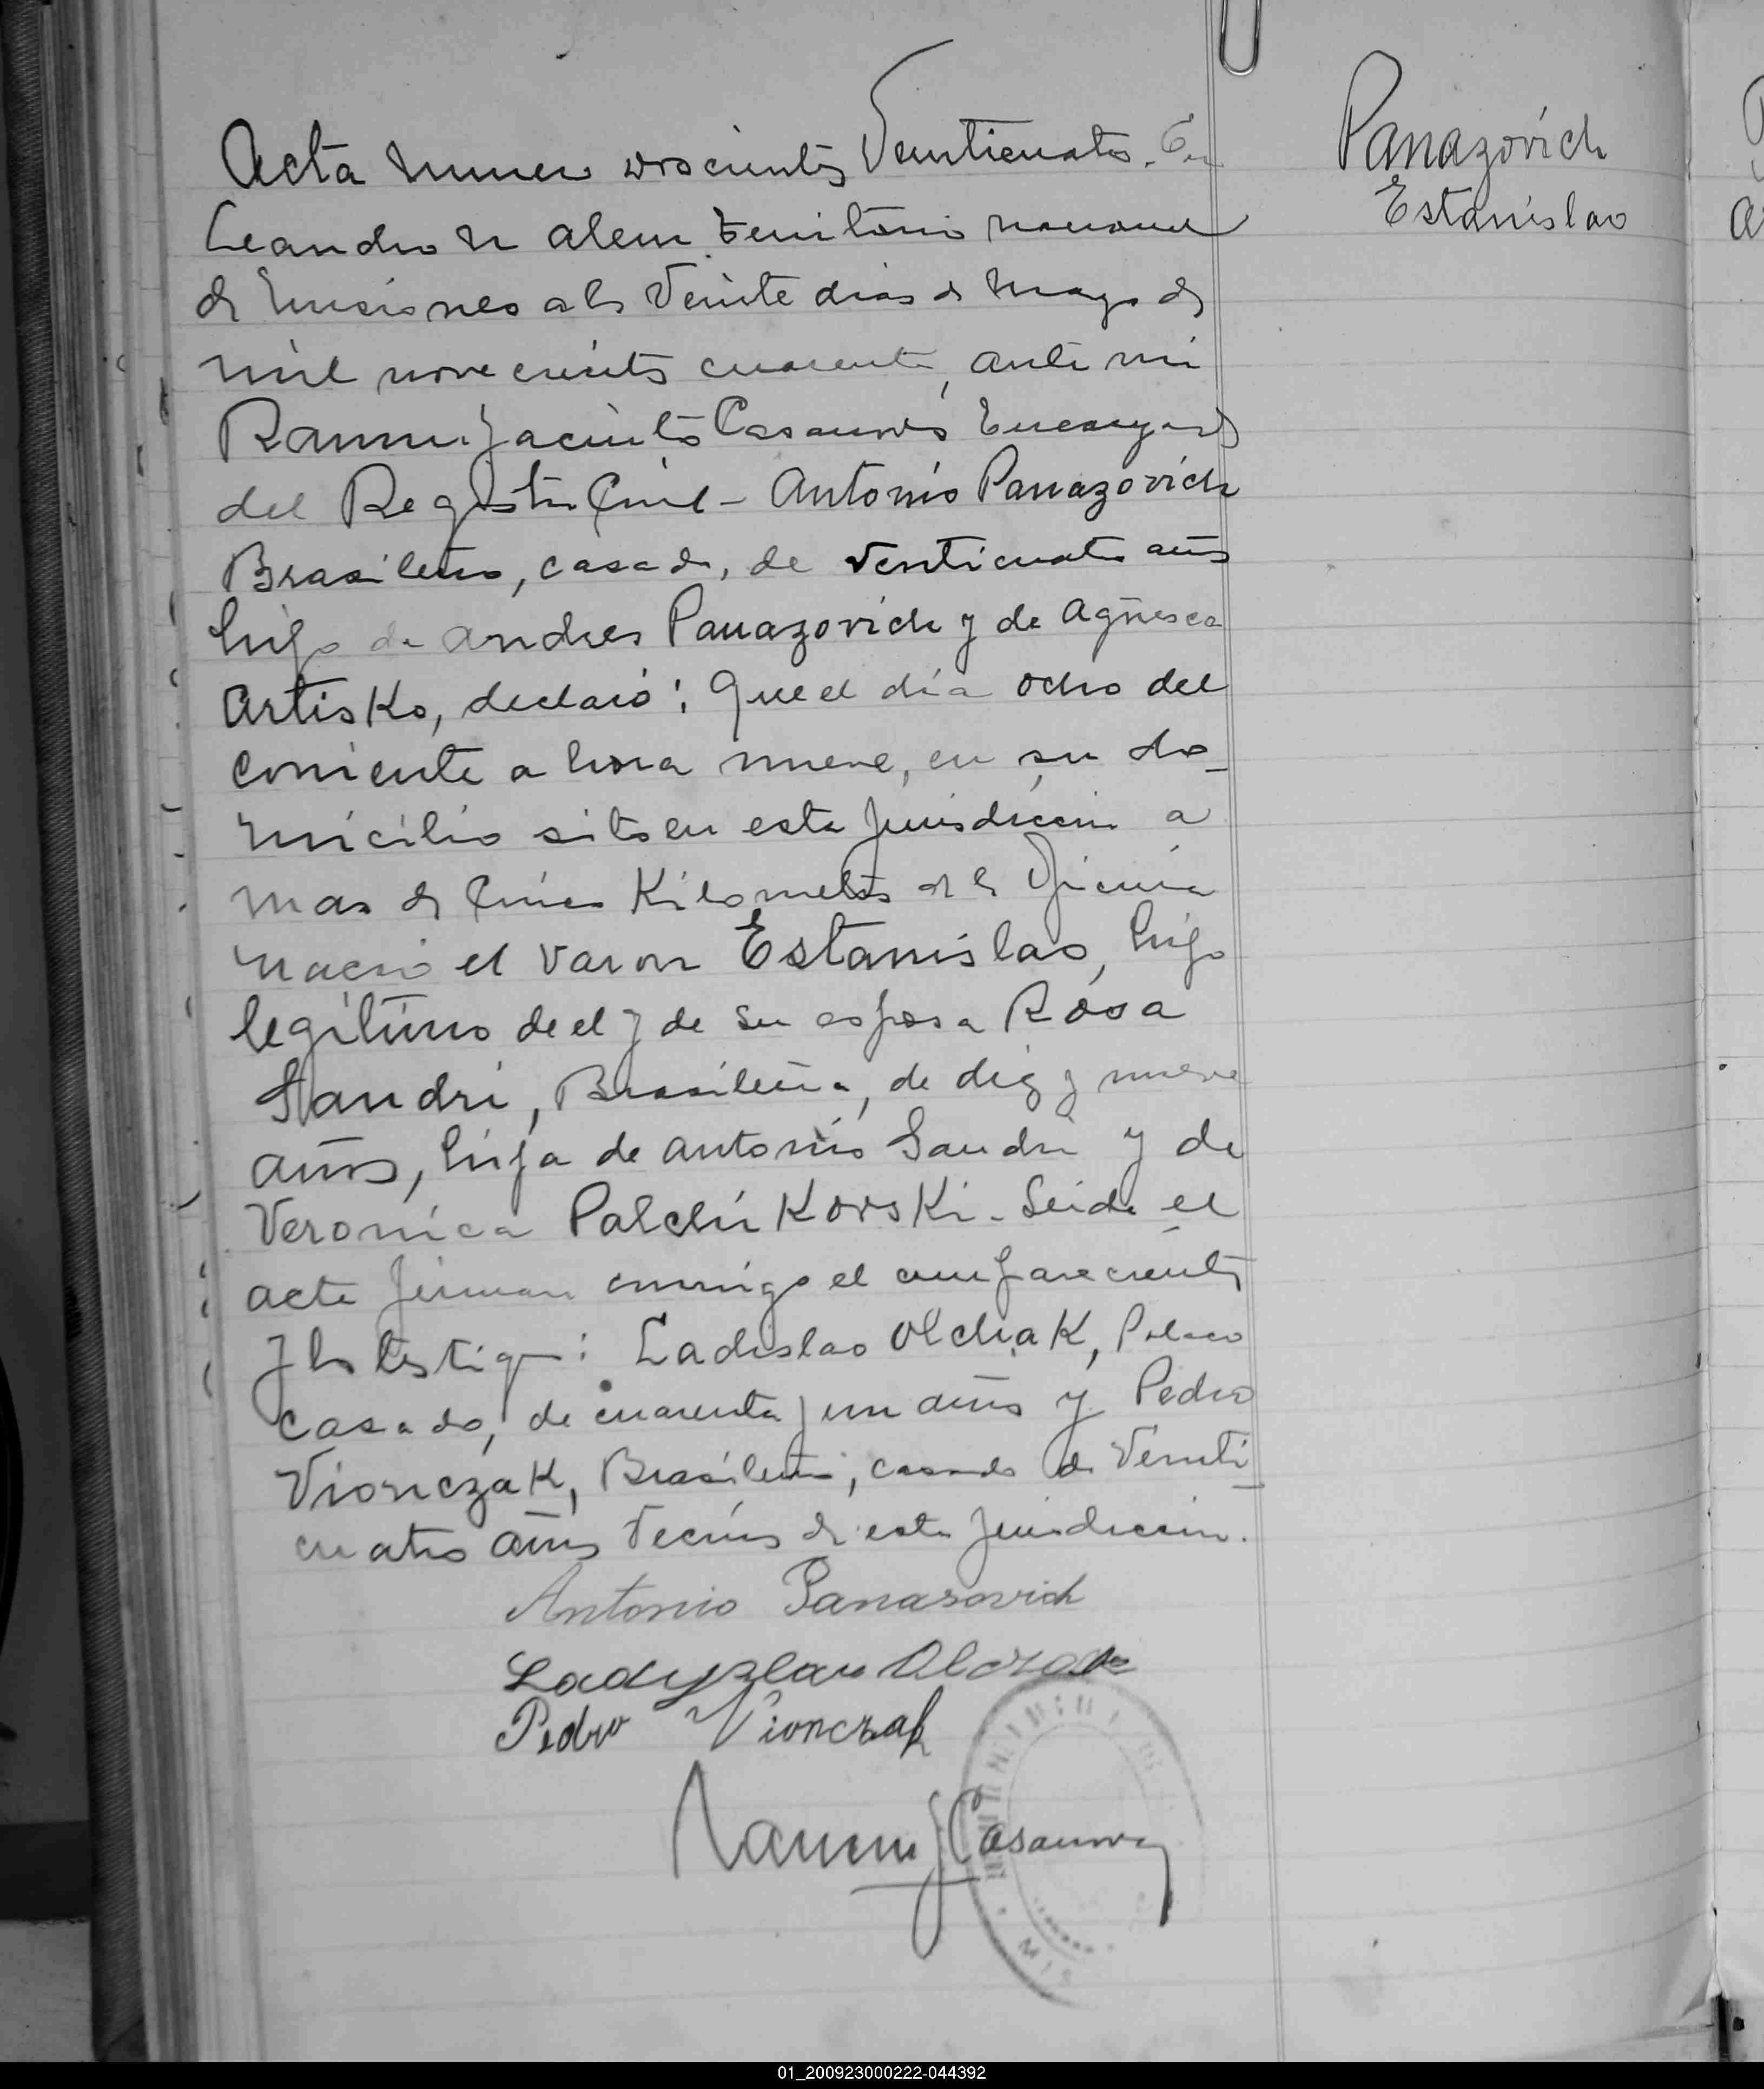 Acta numero doscientos Veinticuatro. En
Leandro N Alem Territorio nacional
de Misiones a los Veinte dias de Mayo de
mil novecientos cuarenta, ante mi
Ramon Jacinto Casanova Encargado
del Registro Civil - Antonio Panazovich
Brasileño, casado, de venticuatro años
hijo de Andres Panazovich y de Agnesca
Artisko, declaró: Que el día ocho del
corriente a hora nueve, en su do_
micilio sito en esta jurisdiccion a
mas de cinco Kilometros de la Oficina
nació el varon Estanislao, hijo
legítimo de el y de su esposa Rosa
Sandri, Brasileña, de diez y nueve
años, hija de Antonio Sandri y de
Veronica Palchikovski. Leida el
acta firman conmigo el compareciente
y los testigos: Ladislao Olchak, Polaco
casado, de cuarenta y un años y Pedro
Vionczak, Brasileño, casado de Veinti_
cuatro años vecinos de esta jurisdiccion.
Antonio Panasovich
Ladyzlau Olczak
Pedro Vionczak
Ramon J Casanova
MIS
Panazovich
Estanislao
01_200923000222-044392